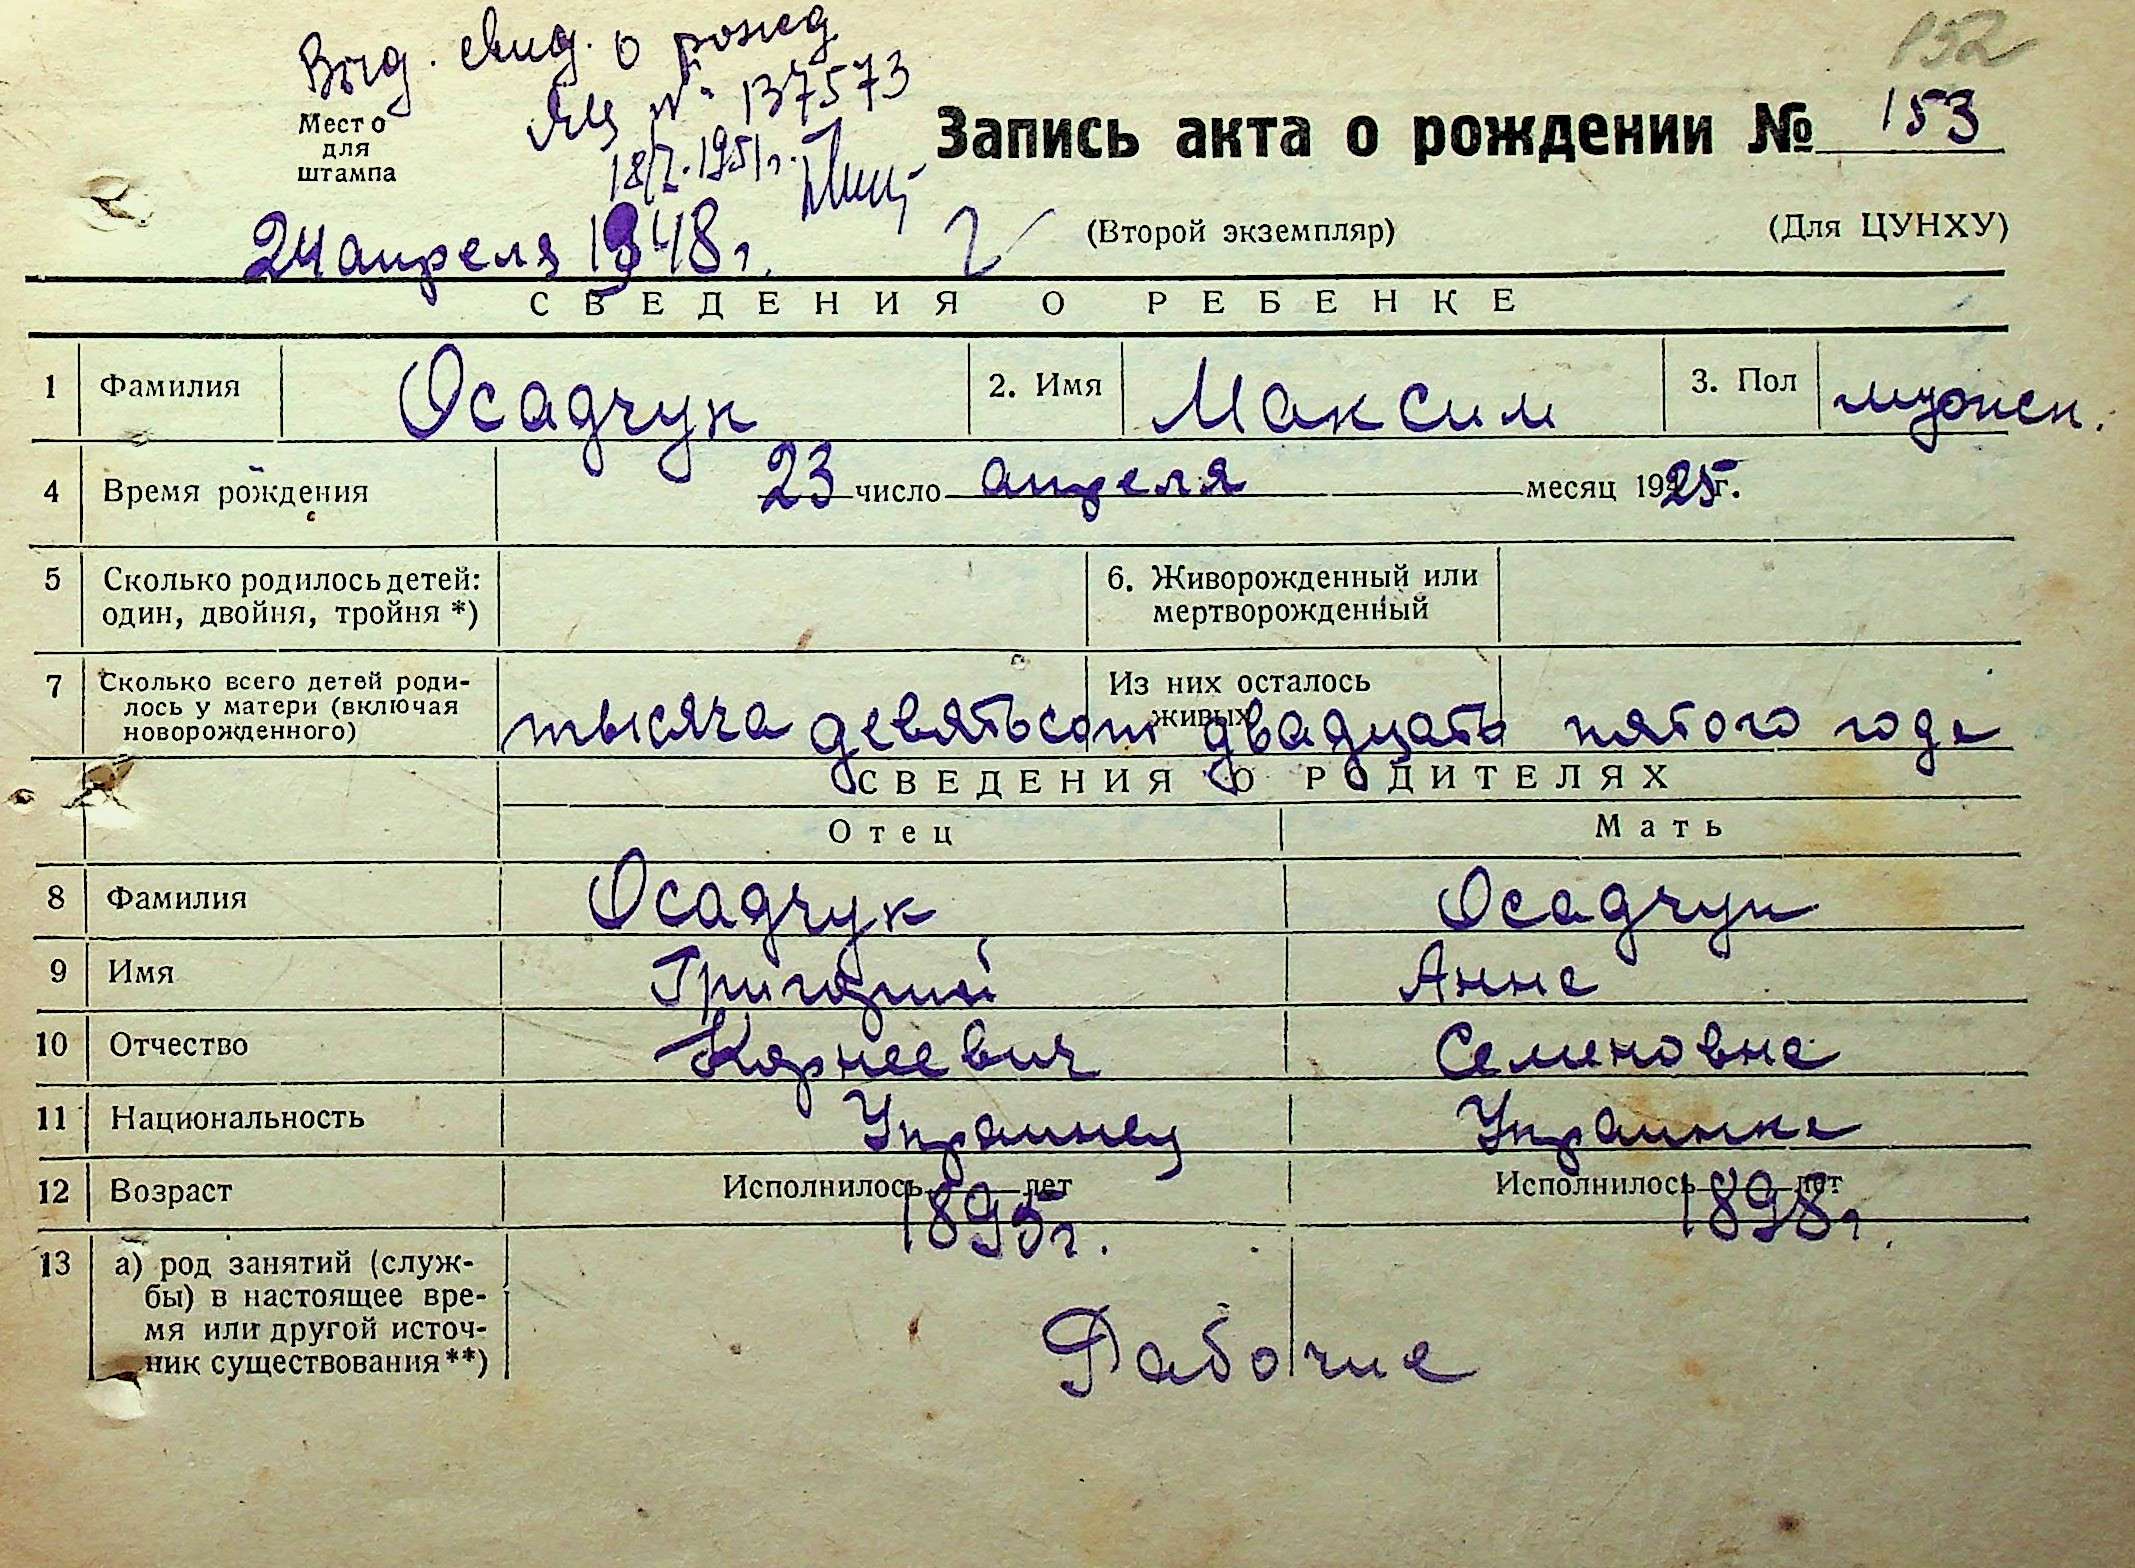 152
Выд. свид. о рожд
ЯЦ № 137573
18/I.1951г.
Место
для
штампа
Запись акта о рождении № 153
24 апреля 1948 г.
(Второй экземпляр)
(Для ЦУНХУ)
СВЕДЕНИЯ О РЕБЕНКЕ
1 Фамилия Осадчук 2. Имя Максим 3. Пол мужск.
4 Время рождения 23 число апреля месяц 1925 г.
5 Сколько родилось детей: один, двойня, тройня *) 6. Живорожденный или мертворожденный
7 Сколько всего детей родилось у матери (включая новорожденного) Из них осталось живых
тысяча девятьсот двадцать пятого года
СВЕДЕНИЯ О РОДИТЕЛЯХ
Отец Мать
8 Фамилия Осадчук Осадчук
9 Имя Григорий Анна
10 Отчество Корнеевич Семеновна
11 Национальность Украинец Украинка
12 Возраст Исполнилось лет Исполнилось лет
1895г. 1898г.
13 а) род занятий (служ-
бы) в настоящее вре-
мя или другой источ-
ник существования**)
Рабочие